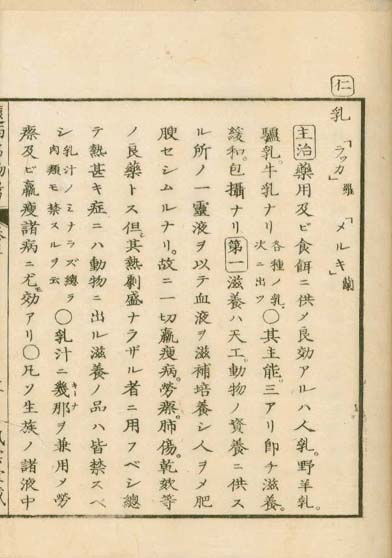 仁
乳 「ラッカ」羅 「メルキ」蘭
主治 薬用及ビ食餌ニ供メ良効アルハ人乳。野羊乳。
驢乳。牛乳ナリ 各種ノ乳、次ニ出ツ ○其主能。三アリ即チ滋養。
緩和。包攝ナリ 第一 滋養ハ天工。動物ノ資養ニ供ス
ル所ノ一霊液ヲ以テ血液ヲ滋補培養シ人ヲメ肥
腴セシムルナリ。故ニ一切羸痩病。労瘵。肺傷。乾欬等
ノ良薬トス但。其熱劇盛ナラザル者ニ用フベシ総
テ熱甚キ症ニハ動物ニ出ル滋養ノ品ハ皆禁スベ
シ 乳汁ノミナラズ総テ肉類モ禁スルヲ云 ○乳汁ニ幾那ヲ兼用メ労
キーナ
瘵及ビ羸痩諸病ニ尤モ効アリ○凡ソ生族ノ諸液中